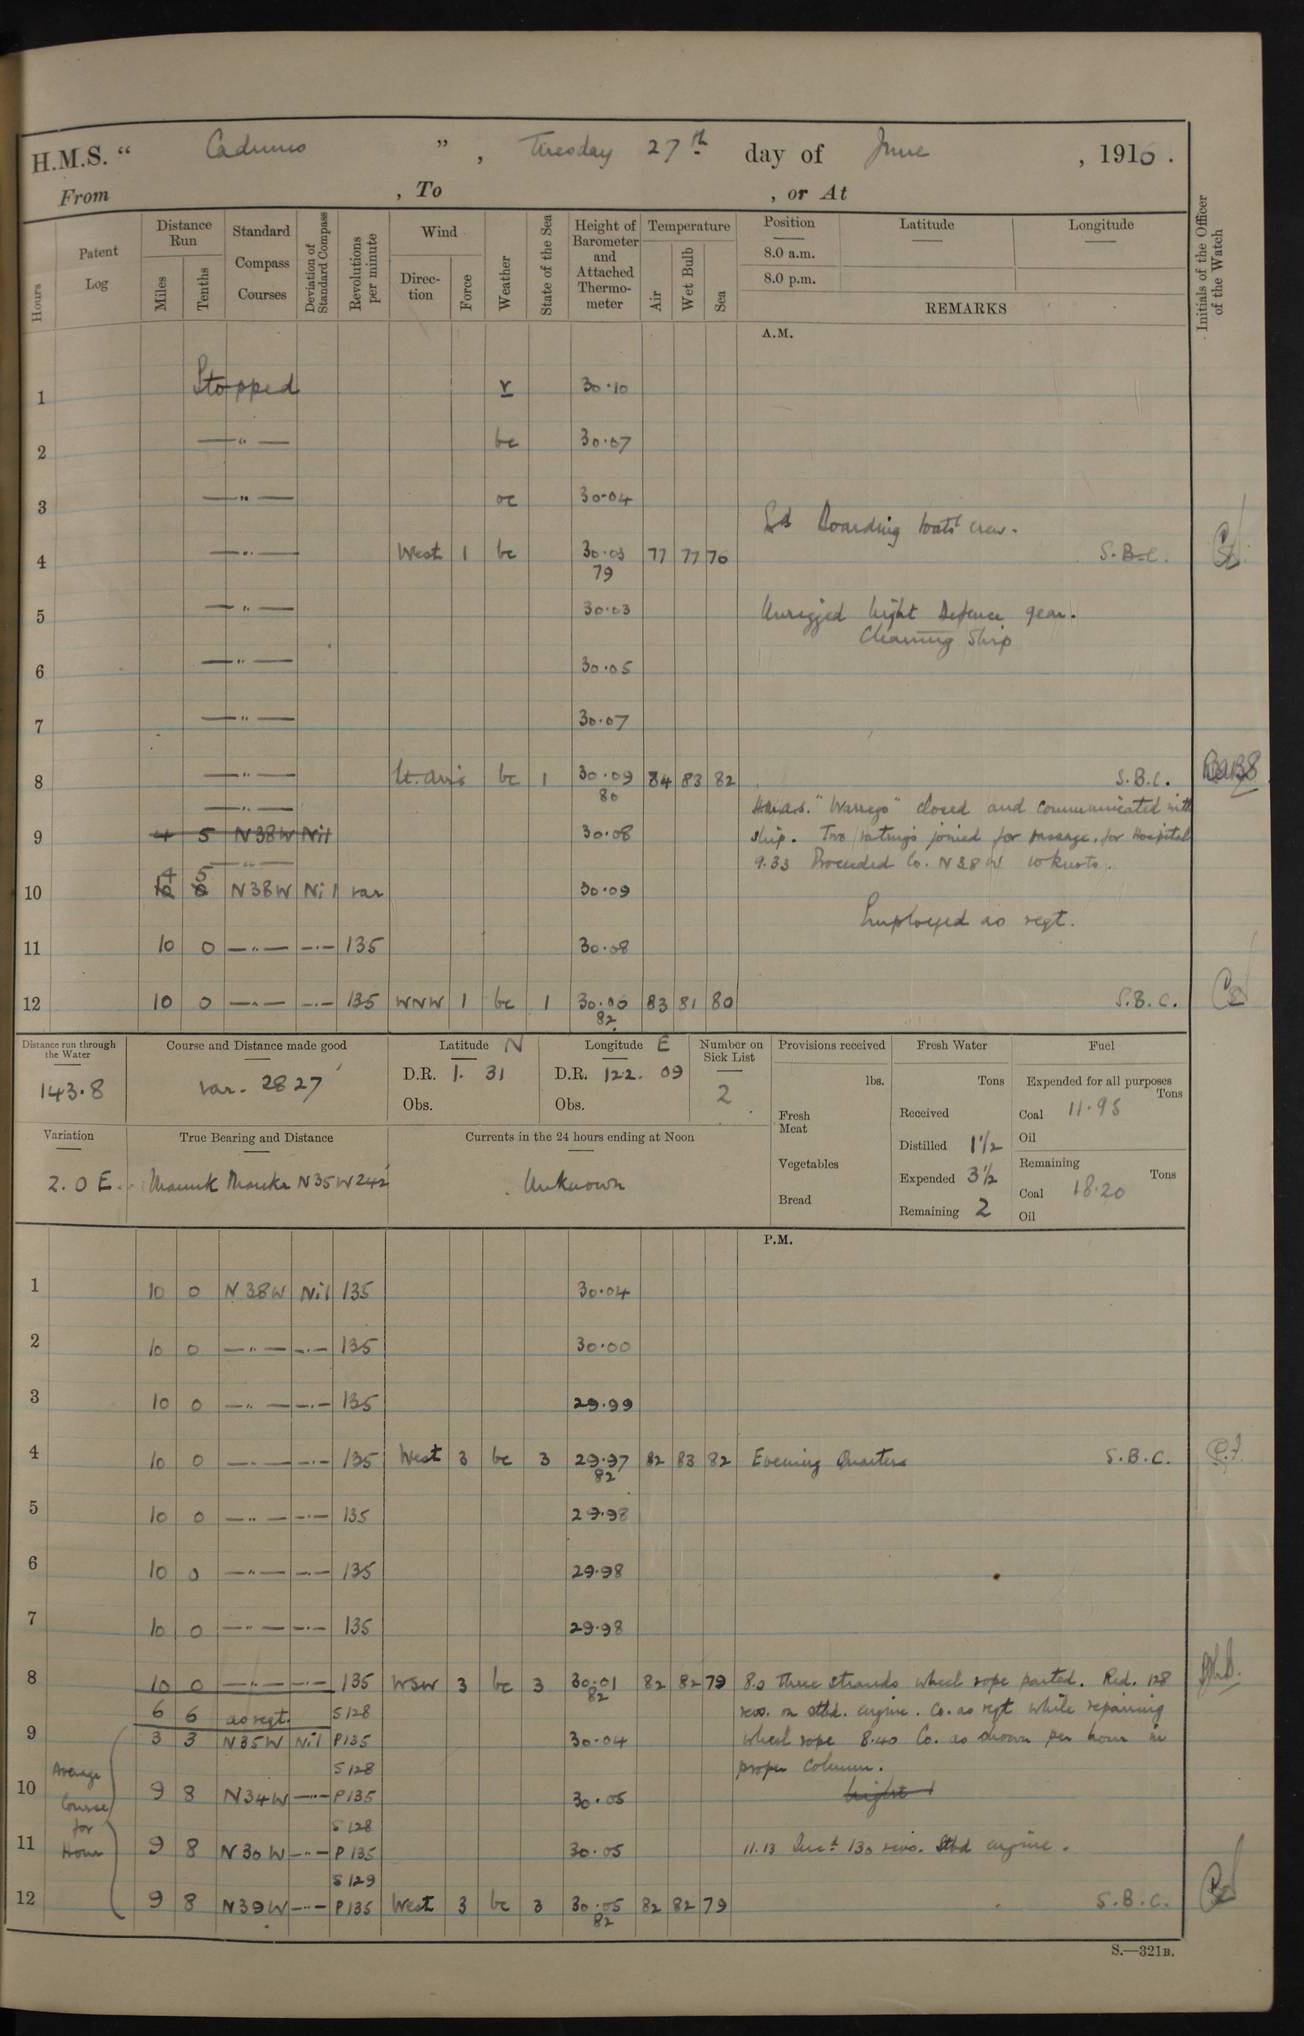 H.M.S. “ Cadmus ” , Tuesday 27th day of June , 1916 .
From , To , or At
Hours
Patent Log
Distance Run
Miles
Tenths
Standard Compass Courses
Deviation of Standard Compass
Revolutions per minute
Wind
Direction
Force
Weather
State of the Sea
Height of Barometer and Attached Thermometer
Temperature
Air
Wet Bulb
Sea
Position
8.0 a.m.
8.0 p.m.
Latitude
Longitude
REMARKS
Initials of the Officer of the Watch
A.M.
1 Stopped r 30·10
2 —〃— bc 30·07
3 —〃— oc 30·04
Boarding boats crew.
4 —〃— West 1 bc 30·03 77 77 76 S.B.C.
79
5 —〃— 30·03 Unrigged Night Defence gear.
Cleaning Ship
6 —〃— 30·05
7 —〃— 30·07
8 —〃— Lt. airs bc 1 30·09 84 83 82 S.B.C.
80
—〃— H.M.A.S. "Warrego" closed and communicated with
9 4 5 N38W Nil 30·08 ship. Two ratings joined for passage, for Hospital
—〃— 9.33 Proceeded Co. N38W 10 knots.
4 5
10 10 0 N38W Nil var 30·09
Employed as reqt.
11 10 0 —〃— —〃— 135 30·08
12 10 0 —〃— —〃— 135 WNW 1 bc 1 30·06 83 81 80 S.B.C.
82
Distance run through the Water
143.8
Course and Distance made good
var. 28 27'
Latitude N
D.R. 1. 31
Obs.
Longitude E
D.R. 122. 09
Obs.
Number on Sick List
2
Provisions received
lbs.
Fresh Meat
Vegetables
Bread
Fresh Water
Tons
Received
Distilled 1½
Expended 3½
Remaining 2
Fuel
Expended for all purposes
Tons
Coal 11.95
Oil
Remaining
Tons
Coal 18.20
Oil
Variation
2.0 E.
True Bearing and Distance
N35W 242'
Currents in the 24 hours ending at Noon
Unknown
P.M.
1 10 0 N38W Nil 135 30·04
2 10 0 —〃— —〃— 135 30·00
3 10 0 —〃— —〃— 135 29·99
4 10 0 —〃— —〃— 135 West 3 bc 3 29·97 82 83 82 Evening Quarters S.B.C.
82
5 10 0 —〃— —〃— 135 29·98
6 10 0 —〃— —〃— 135 29·98
7 10 0 —〃— —〃— 135 29·98
8 10 0 —〃— —〃— 135 WSW 3 bc 3 30·01 82 82 79 8.0 Three strands wheel rope parted. Red. 128
82
6 6 as reqt. S128 revs. on stbd. engine. Co. as reqt while repairing
9 3 3 N35W Nil P135 30·04 wheel rope 8.40 Co. as shown per hour in
S128 proper column.
10 9 8 N34W —〃— P135 30·05
S128
11 9 8 N30W —〃— P135 30·05 11.13 Incd. 130 revs. Stbd engine.
S129
12 9 8 N39W —〃— P135 West 3 bc 3 30·05 82 82 79 S.B.C.
82
Average Course for Hour
S.—321B.